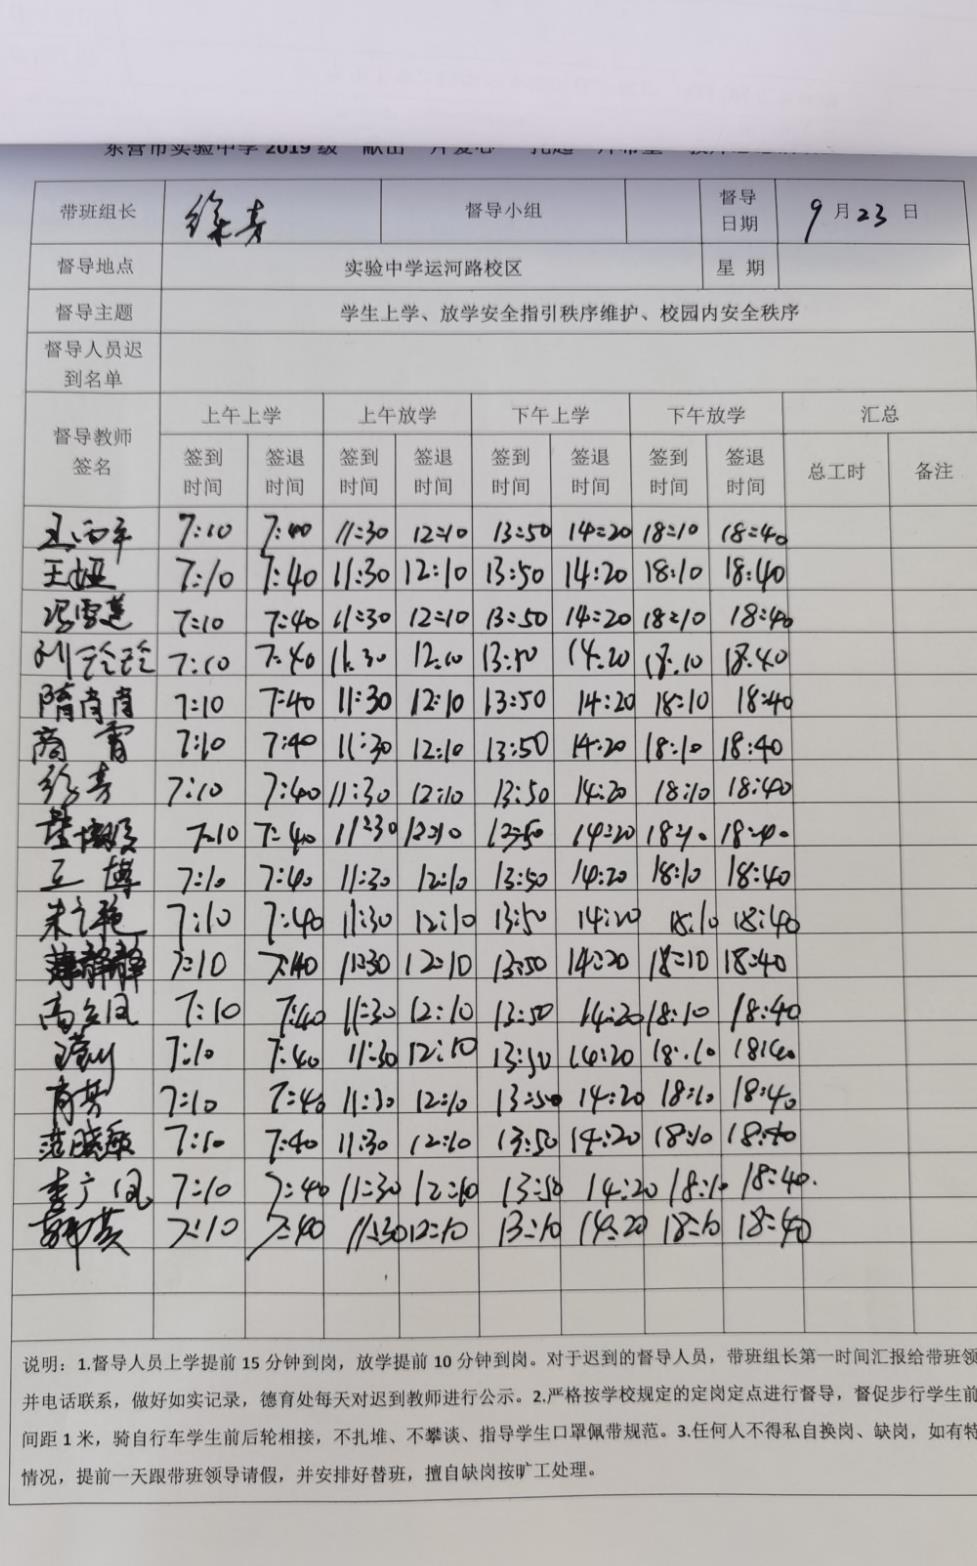 东营市实验中学 2019 级
带班组长 徐芳 督导小组 督导日期 9月23日
督导地点 实验中学运河路校区 星 期
督导主题 学生上学、放学安全指引秩序维护、校园内安全秩序
督导人员迟到名单
督导教师签名 上午上学 上午放学 下午上学 下午放学 汇总
签到时间 签退时间 签到时间 签退时间 签到时间 签退时间 签到时间 签退时间 总工时 备注
7:10 7:40 11:30 12:10 13:50 14:20 18:10 18:40
王娅 7:10 7:40 11:30 12:10 13:50 14:20 18:10 18:40
冯雪莲 7:10 7:40 11:30 12:10 13:50 14:20 18:10 18:40
7:10 7:40 11:30 12:10 13:50 14:20 18:10 18:40
隋肖肖 7:10 7:40 11:30 12:10 13:50 14:20 18:10 18:40
商霄 7:10 7:40 11:30 12:10 13:50 14:20 18:10 18:40
徐芳 7:10 7:40 11:30 12:10 13:50 14:20 18:10 18:40
7:10 7:40 11:30 12:10 13:50 14:20 18:10 18:40
王博 7:10 7:40 11:30 12:10 13:50 14:20 18:10 18:40
7:10 7:40 11:30 12:10 13:50 14:20 18:10 18:40
薄静静 7:10 7:40 11:30 12:10 13:50 14:20 18:10 18:40
高立凤 7:10 7:40 11:30 12:10 13:50 14:20 18:10 18:40
7:10 7:40 11:30 12:10 13:50 14:20 18:10 18:40
7:10 7:40 11:30 12:10 13:50 14:20 18:10 18:40
范晓敏 7:10 7:40 11:30 12:10 13:50 14:20 18:10 18:40
李广凤 7:10 7:40 11:30 12:10 13:50 14:20 18:10 18:40.
7:10 7:40 11:30 12:10 13:10 14:20 18:10 18:40
说明：1.督导人员上学提前 15 分钟到岗，放学提前 10 分钟到岗。对于迟到的督导人员，带班组长第一时间汇报给带班领
并电话联系，做好如实记录，德育处每天对迟到教师进行公示。2.严格按学校规定的定岗定点进行督导，督促步行学生前
间距 1 米，骑自行车学生前后轮相接，不扎堆、不攀谈、指导学生口罩佩带规范。3.任何人不得私自换岗、缺岗，如有特
情况，提前一天跟带班领导请假，并安排好替班，擅自缺岗按旷工处理。